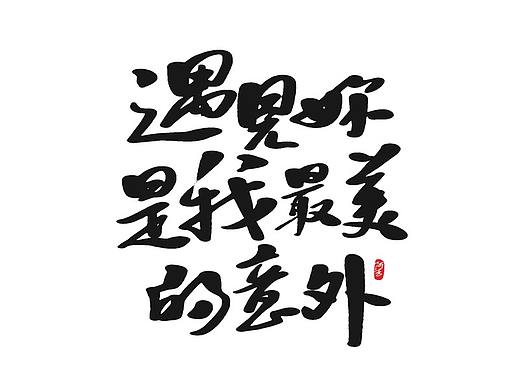 遇見妳
是我最美
的意外